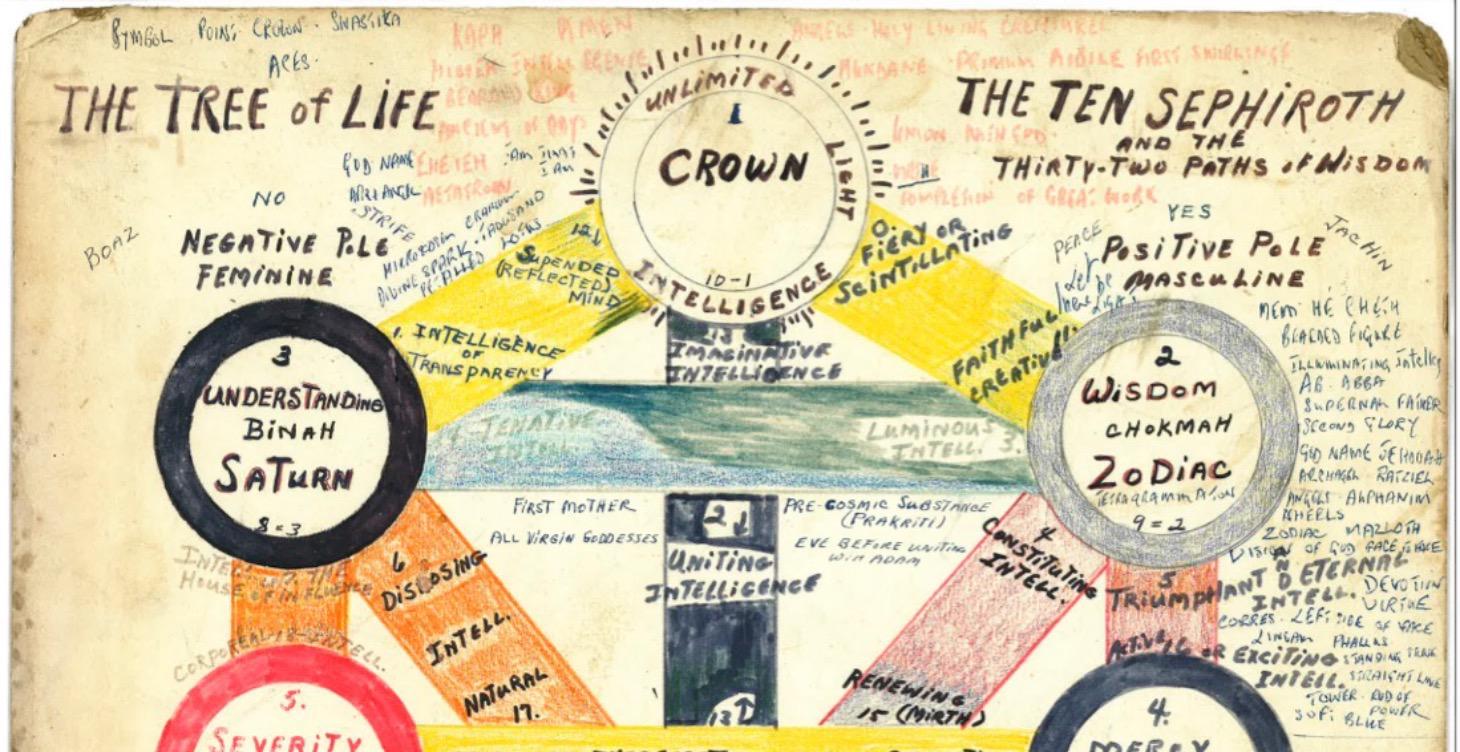 SYMBOL POINT CROWN - SWASTIKA
ACES.
THE TREE of LIFE
KAPH AMEN
HIDDEN INTELLIGENCE
BEARDED KING
ANCIENT OF DAYS
GOD NAME EHEIEH
I AM THAT
I AM
ARCHANGL METATRON
ANGELS HOLY LIVING CREATURES
PRIMUM MOBILE FIRST SWIRLINGS
UNION WITH GOD
COMPLETION OF GREAT WORK
THE TEN SEPHIROTH
AND THE
THIRTY-TWO PATHS of WISDOM
UNLIMITED
LIGHT
1
CROWN
10-1
INTELLIGENCE
NO
NEGATIVE POLE
FEMININE
BOAZ
STRIFE
THOUSAND
DIVINE SPARK
12↓
SUPENDED
(REFLECTED)
MIND
1. INTELLIGENCE
OF
TRANSPARENCY
0.
FIERY OR
SCINTILLATING
FAITHFUL
CREATIVE
YES
POSITIVE POLE
MASCULINE
PEACE
JACHIN
13
IMAGINATIVE
INTELLIGENCE
3
UNDERSTANDING
BINAH
SATURN
8=3
14 TENATIVE
INTELL.
LUMINOUS
INTELL. 3.
2
WISDOM
CHOKMAH
ZODIAC
TETRAGRAMMATON
9=2
BEARDED FIGURE
ILLUMINATING
AB. ABBA
SUPERNAL FATHER
SECOND GLORY
GOD NAME JEHOVAH
ARCHAGL RATZIEL
ANGELS
WHEELS
ZODIAC MAZLOTH
VISION OF GOD FACE TO FACE
DEVOTION
VIRTUE
CORRES. LEFT SIDE OF FACE
LINGAM PHALLUS
STRAIGHT LINE
TOWER ROD OF
POWER
SOFT BLUE
FIRST MOTHER
ALL VIRGIN GODDESSES
PRE-COSMIC SUBSTANCE
(PRAKRITI)
EVE BEFORE UNITING
WITH ADAM
2↓
UNITING
INTELLIGENCE
13↑
6
DISPOSING
INTELL.
NATURAL
17.
4
CONSTITUTING
INTELL.
RENEWING
15 (MIRTH)
5
TRIUMPHANT AND ETERNAL
INTELL.
ACTIVE 16 OR EXCITING
INTELL.
HOUSE OF INFLUENCE
CORPOREAL-18-INTELL.
5.
SEVERITY
4.
MERCY